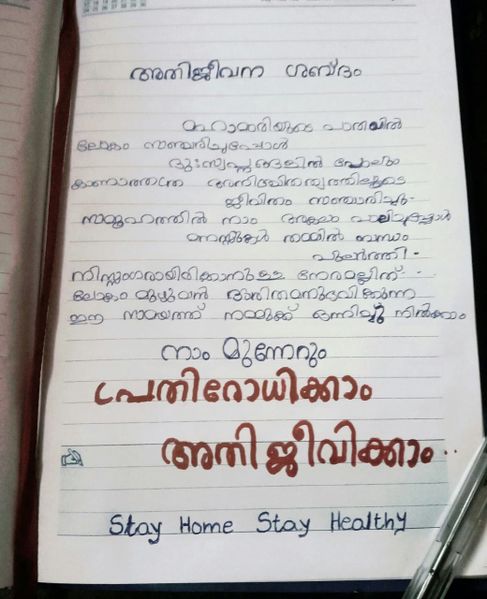 അതിജീവന ശബ്ദം
മഹാമാരിയുടെ പാതയിൽ
ലോകം സഞ്ചരിച്ചപ്പോൾ
ദുഃസ്വപ്നങ്ങളിൽ പോലും
കാണാത്തത്ര അനിശ്ചിതത്വത്തിലൂടെ
ജീവിതം സഞ്ചാരിച്ചു.
സമൂഹത്തിൽ നാം അകലം പാലിച്ചപ്പോൾ
മനസ്സുകൾ തമ്മിൽ ബന്ധം
പുലർത്തി.
നിസ്സംഗരായിരിക്കാനുള്ള നേരമല്ലിത്.
ലോകം മുഴുവൻ അതിതമനുഭവിക്കുന്ന
ഈ സമയത്ത് നമുക്ക് ഒന്നിച്ചു നിൽക്കാം
നാം മുന്നേറും
പ്രതിരോധിക്കാം
അതിജീവിക്കാം..
Stay Home Stay Healthy